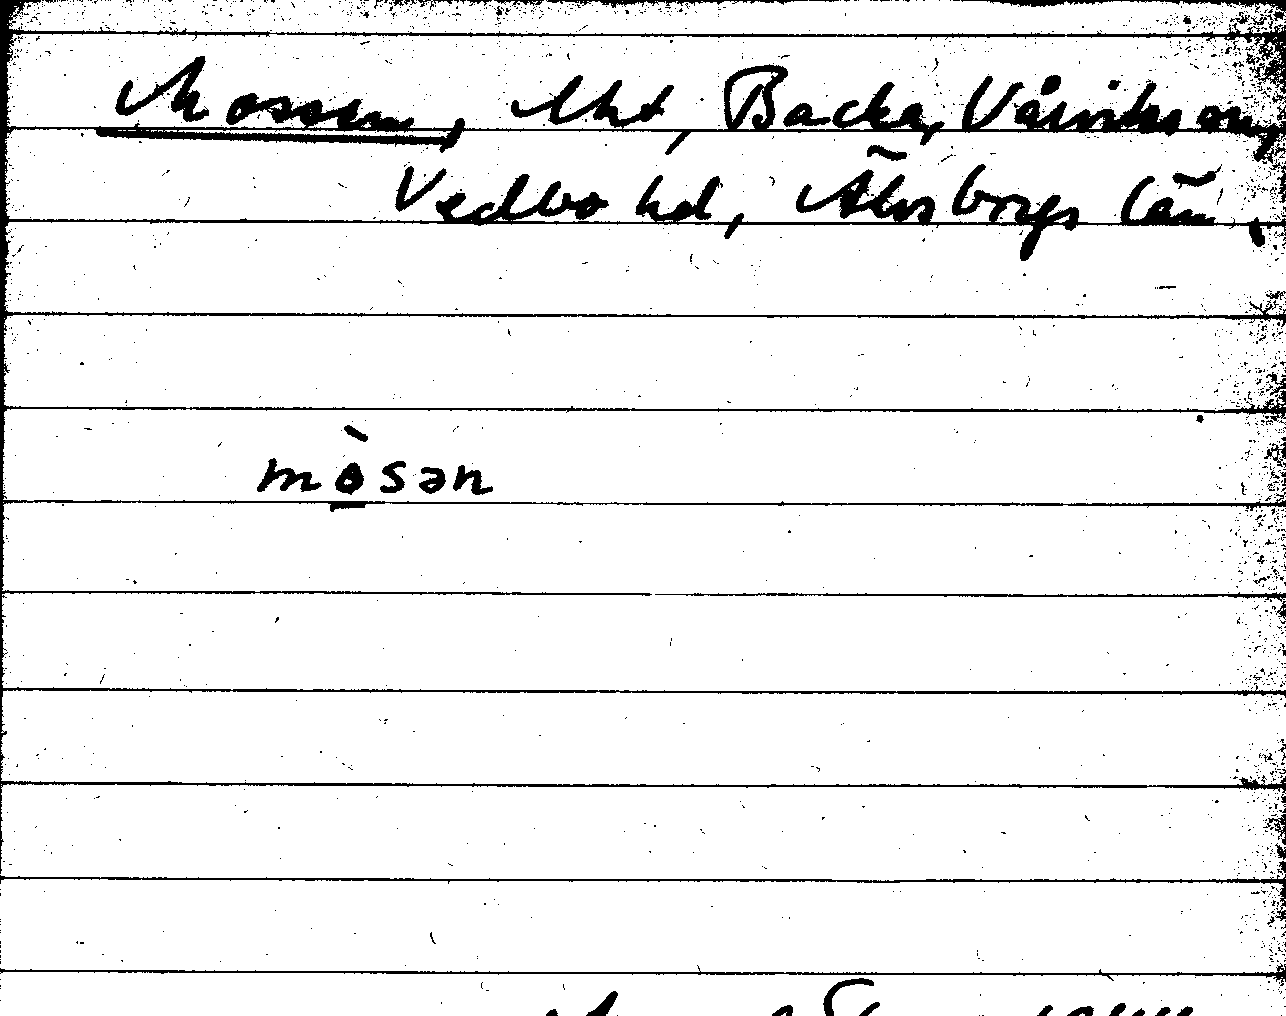 Mossen, Mht, Backa, Vårviks sn,
Vedbo hd, Älvsborgs län.
mòsən